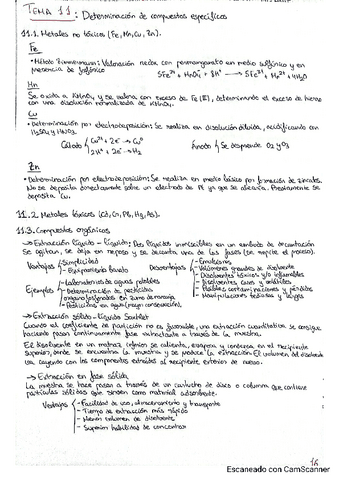 TEMA 11: Determinación de compuestos específicos
11.1. Metales no tóxicos (Fe, Mn, Cu, Zn).
Fe
• Método Zimmermann: Valoración redox con permanganato en medio sulfúrico y en
presencia de fosfórico
5Fe²⁺ + MnO₄⁻ + 8H⁺ → 5Fe³⁺ + Mn²⁺ + 4H₂O
Mn
Se oxida a KMnO₄ y se valora con exceso de Fe(II), determinando el exceso de hierro
con una disolución normalizada de KMnO₄.
Cu
• Determinación por electrodeposición: Se realiza en disolución diluida, acidificando con
H₂SO₄ y HNO₃
Cátodo Cu²⁺ + 2e⁻ → Cu⁰
2H⁺ + 2e⁻ → H₂
Ánodo Se desprende O₂ y O₃
Zn
• Determinación por electrodeposición: Se realiza en medio básico por formación de zincatos.
No se deposita directamente sobre un electrodo de Pt ya que se alearía. Previamente se
deposita Cu.
11.2. Metales tóxicos (Cd, Cr, Pb, Hg, As).
11.3. Compuestos orgánicos
→ Extracción líquido-líquido: Dos líquidos inmiscibles en un embudo de decantación
Se agitan, se deja en reposo y se decanta una de las fases (se repite el proceso).
Ventajas - Simplicidad
- Equipamiento barato
Desventajas - Emulsiones
- Volúmenes grandes de disolvente
- Disolventes tóxicos y/o inflamables
- Disolventes caros y volátiles
- Posibles contaminaciones y pérdidas
- Manipulaciones tediosas y largas
Ejemplos - Laboratorios de aguas potables
- Determinación de pesticidas
organofosforados en zumo de naranja
- Pesticidas en agua (mejor conservación)
→ Extracción sólido-líquido Soxhlet
Cuando el coeficiente de partición no es favorable, una extracción cuantitativa se consigue
haciendo pasar continuamente fase extractante a través de la muestra.
El disolvente en un matraz inferior se calienta, evapora y condensa, en el recipiente
superior, donde se encuentra la muestra y se produce la extracción. El volumen del disolvente
va cayendo con los componentes extraídos al recipiente exterior de nuevo.
→ Extracción en fase sólida
La muestra se hace pasar a través de un cartucho de disco o columna que contiene
partículas sólidas que sirven como material adsorbente.
Ventajas - Facilidad de uso, almacenamiento y transporte
- Tiempo de extracción más rápido
- Menor volumen de disolvente
- Superior habilidad de concentrar
16
Escaneado con CamScanner